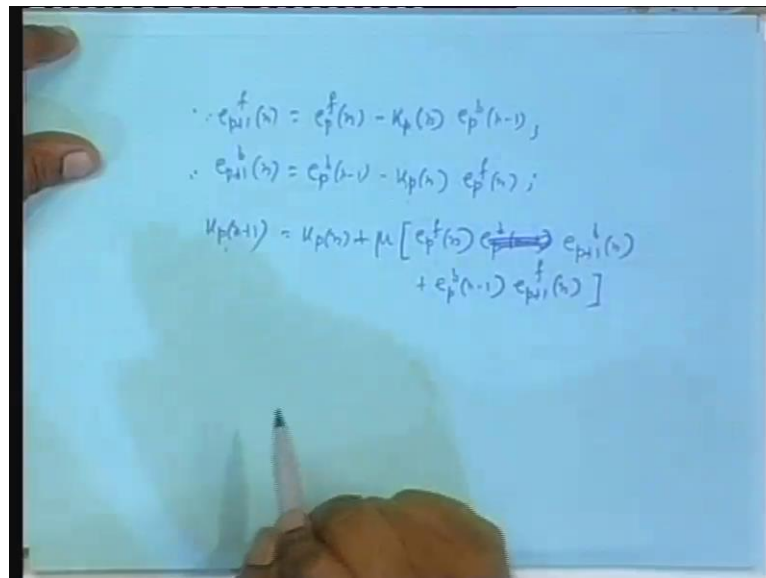 ∴ e_{p+1}^f(n) = e_p^f(n) - K_p(n) e_p^b(n-1);
∴ e_{p+1}^b(n) = e_p^b(n-1) - K_p(n) e_p^f(n);
K_p(n+1) = K_p(n) + μ [ e_p^f(n) e_{p+1}^b(n)
+ e_p^b(n-1) e_{p+1}^f(n) ]